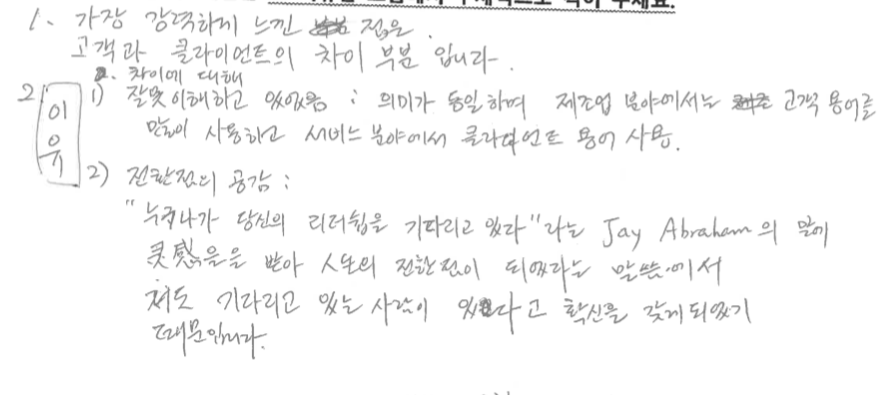 1. 가장 강력하게 느낀 점은
고객과 클라이언트의 차이 부분 입니다.
차이에 대해
2. 이유 1) 잘못이해하고 있었음 : 의미가 동일하며 제조업 분야에서는 고객 용어를
많이 사용하고 서비스 분야에서 클라이언트 용어 사용.
2) 전환점의 공감 :
"누구나가 당신의 리더쉽을 기다리고 있다"라는 Jay Abraham의 말에
灵感을 받아 人生의 전환점이 되었다는 말씀에서
저도 기다리고 있는 사람이 있다고 확신을 갖게되었기
때문입니다.